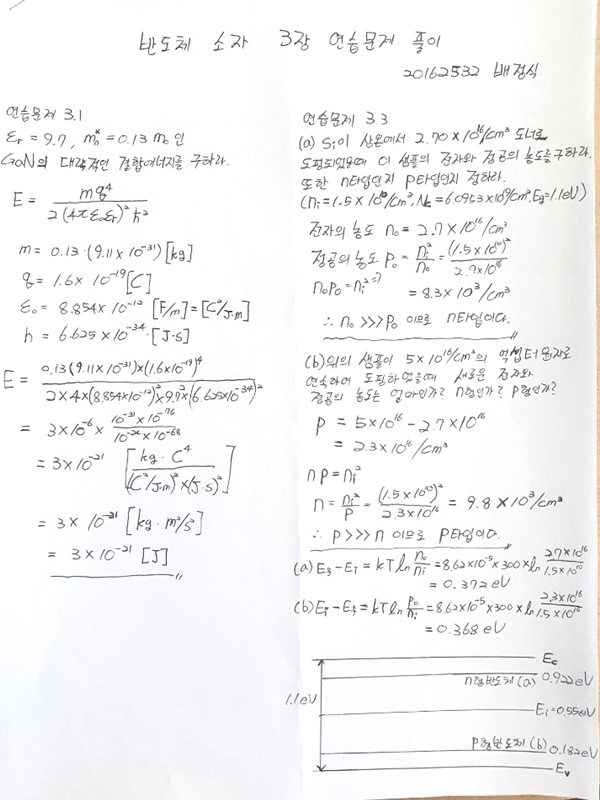 반도체 소자 3장 연습문제 풀이
20162532 배정식
연습문제 3.1
εr = 9.7, m*n = 0.13 m0 인
GaN의 대략적인 결합에너지를 구하라.
E = mq⁴ / 2(4πε0εr)²ħ²
m = 0.13·(9.11×10⁻³¹)[kg]
q = 1.6×10⁻¹⁹[C]
ε0 = 8.854×10⁻¹²[F/m]=[C²/J·m]
h = 6.625×10⁻³⁴·[J·s]
E = 0.13(9.11×10⁻³¹)×(1.6×10⁻¹⁹)⁴ / 2×4×(8.854×10⁻¹²)²×9.7²×(6.625×10⁻³⁴)²
= 3×10⁻⁶ × 10⁻³¹×10⁻⁷⁶ / 10⁻²⁴×10⁻⁶⁸
= 3×10⁻²¹ [kg·C⁴ / (C²/J·m)²×(J·s)²]
= 3×10⁻²¹ [kg·m²/s²]
= 3×10⁻²¹ [J]
연습문제 3.3
(a) Si이 상온에서 2.70×10¹⁶/cm³ 도너로
도핑되었을때 이 샘플의 전자와 정공의 농도를 구하라.
또한 n타입인지 P타입인지 정하라.
(ni=1.5×10¹⁰/cm³, 6.0953×10 /cm³, Eg=1.1eV)
전자의 농도 n0 = 2.7×10¹⁶/cm³
정공의 농도 P0 = ni²/n0 = (1.5×10¹⁰)²/2.7×10¹⁶
n0P0 = ni² ⇒ = 8.3×10³/cm³
∴ n0 >>> P0 이므로 n타입이다.
(b) 위의 샘플이 5×10¹⁶/cm³의 억셉터 원자로
연속하여 도핑하였을때 새로운 전자와
정공의 농도는 얼마인가? n형인가? P형인가?
P = 5×10¹⁶ - 2.7×10¹⁶
= 2.3×10¹⁶/cm³
nP = ni²
n = ni²/P = (1.5×10¹⁰)²/2.3×10¹⁶ = 9.8×10³/cm³
∴ P >>> n 이므로 P타입이다.
(a) Ef - Ei = kT ln n0/ni = 8.62×10⁻⁵×300×ln 2.7×10¹⁶/1.5×10¹⁰
= 0.372 eV
(b) Ei - Ef = kT ln P0/ni = 8.62×10⁻⁵×300×ln 2.3×10¹⁶/1.5×10¹⁰
= 0.368 eV
Ec
n형반도체(a) 0.922eV
1.1eV
Ei=0.55eV
P형반도체(b) 0.182eV
Ev